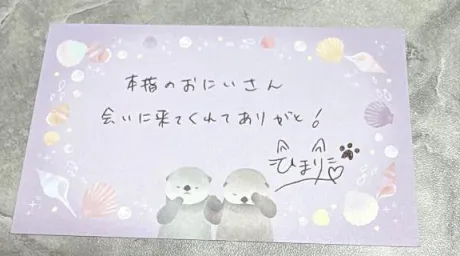 本指のおにいさん
会いに来てくれてありがと!
ひまり